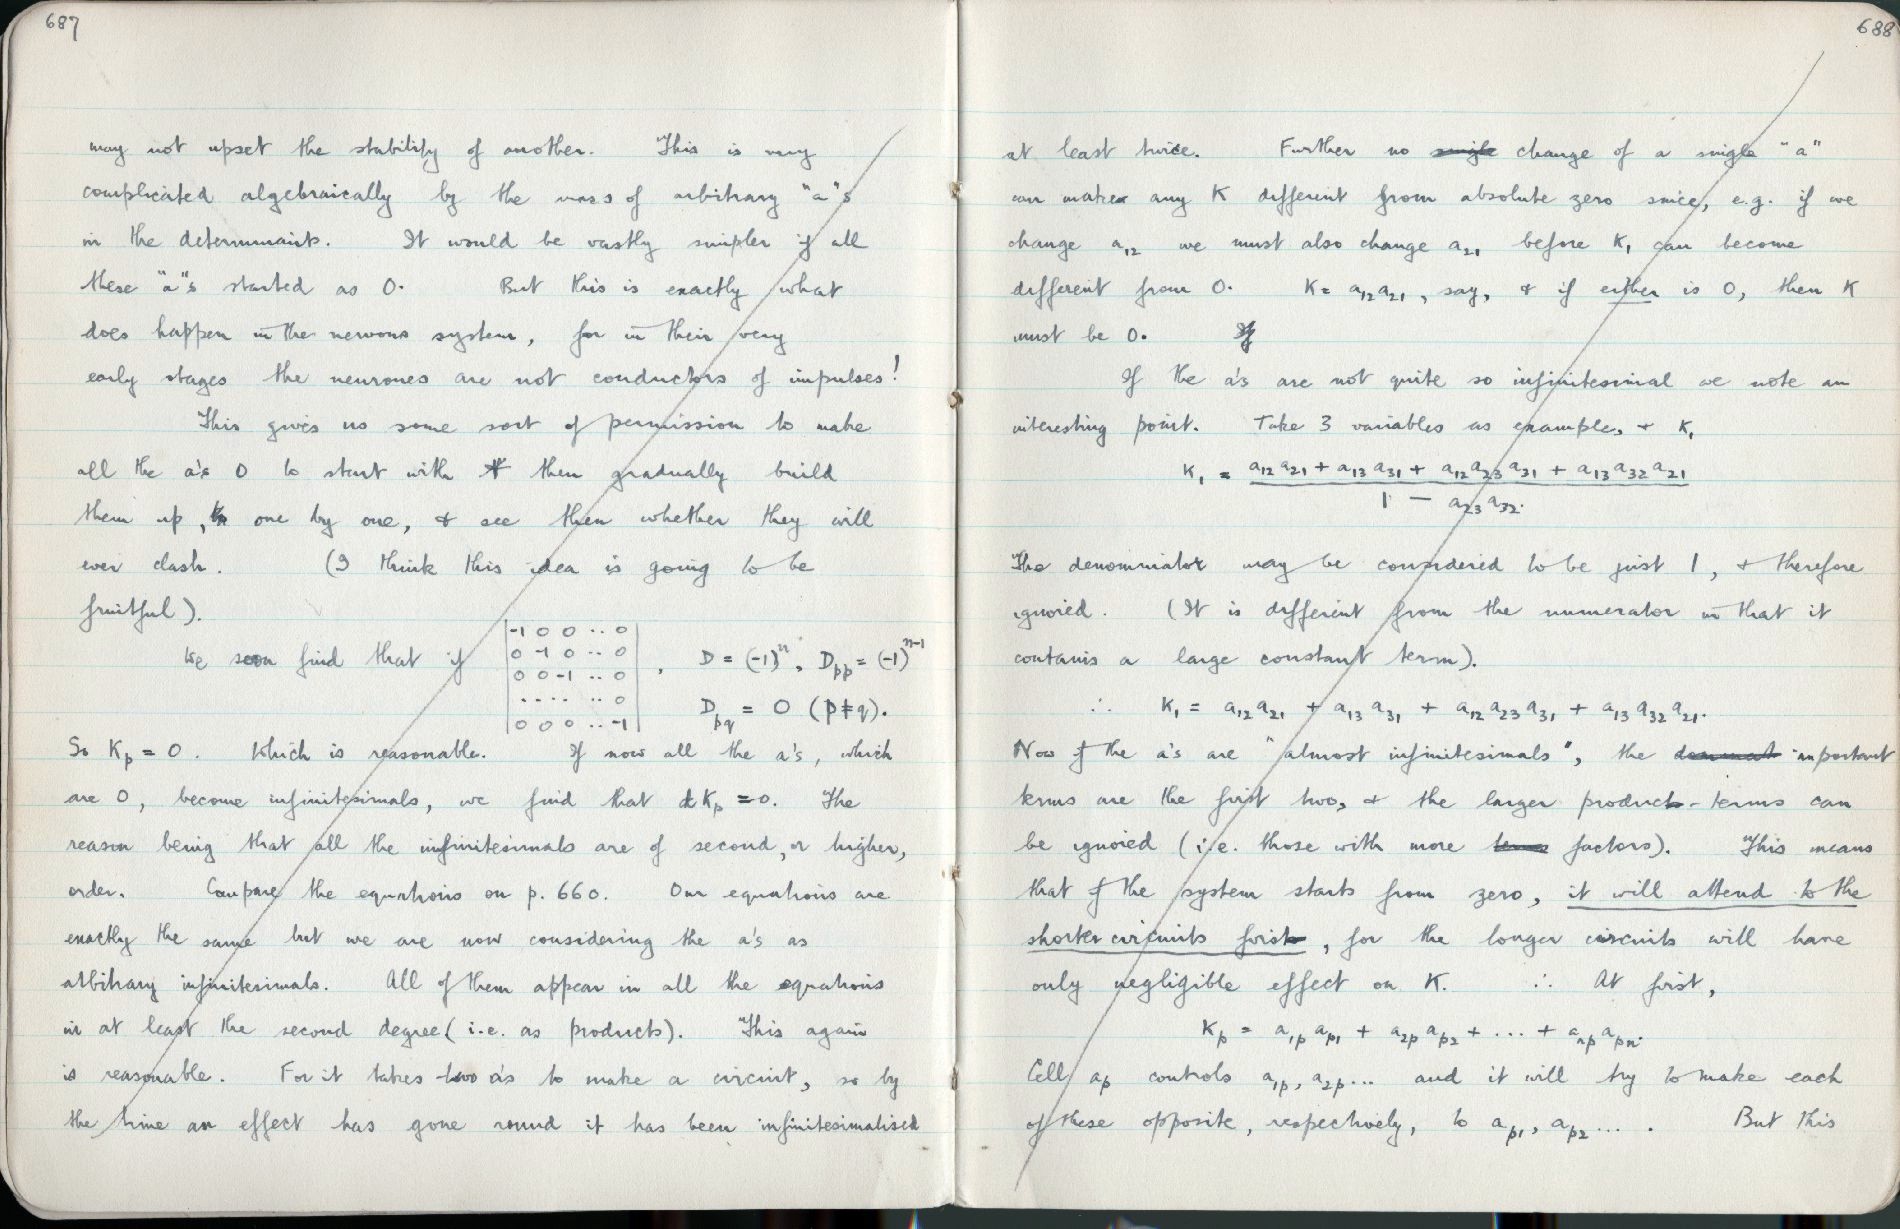 687
may not upset the stability of another. This is very
complicated algebraically by the mass of arbitrary "a"s
in the determinants. It would be vastly simpler if all
these "a"s started as 0. But this is exactly what
does happen in the nervous system, for in their very
early stages the neurones are not conductors of impulses!
This gives us some sort of permission to make
all the a's 0 to start with & then gradually build
them up, one by one, & see then whether they will
ever clash. (I think this idea is going to be
fruitful).
We soon find that if | -1 0 0 ·· 0 |
| 0 -1 0 ·· 0 |
| 0 0 -1 ·· 0 |
| ···· ·· 0 |
| 0 0 0 ·· -1 | , D = (-1)^n, D_pp = (-1)^{n-1}
D_pq = 0 (p≠q).
So K_p = 0. Which is reasonable. If now all the a's, which
are 0, become infinitesimals, we find that dK_p = 0. The
reason being that all the infinitesimals are of second, or higher,
order. Compare the equations on p. 660. Our equations are
exactly the same but we are now considering the a's as
arbitrary infinitesimals. All of them appear in all the equations
in at least the second degree (i.e. as products). This again
is reasonable. For it takes two a's to make a circuit, so by
the time an effect has gone round it has been infinitesimalised
688
at least twice. Further no single change of a single "a"
can make any K different from absolute zero since, e.g. if we
change a_12 we must also change a_21 before K_1 can become
different from 0. K = a_12 a_21, say, & if either is 0, then K
must be 0. If
If the a's are not quite so infinitesimal we note an
interesting point. Take 3 variables as example, & K_1
K_1 = a_12 a_21 + a_13 a_31 + a_12 a_23 a_31 + a_13 a_32 a_21
1 - a_23 a_32.
The denominator may be considered to be just 1, & therefore
ignored. (It is different from the numerator in that it
contains a large constant term).
∴ K_1 = a_12 a_21 + a_13 a_31 + a_12 a_23 a_31 + a_13 a_32 a_21.
Now if the a's are "almost infinitesimals", the dominant important
terms are the first two, & the larger product-terms can
be ignored (i.e. those with more terms factors). This means
that if the system starts from zero, it will attend to the
shorter circuits first, for the longer circuits will have
only negligible effect on K. ∴ At first,
K_p = a_1p a_p1 + a_2p a_p2 + ... + a_np a_pn.
Cell a_p controls a_1p, a_2p... and it will try to make each
of these opposite, respectively, to a_p1, a_p2.... But this